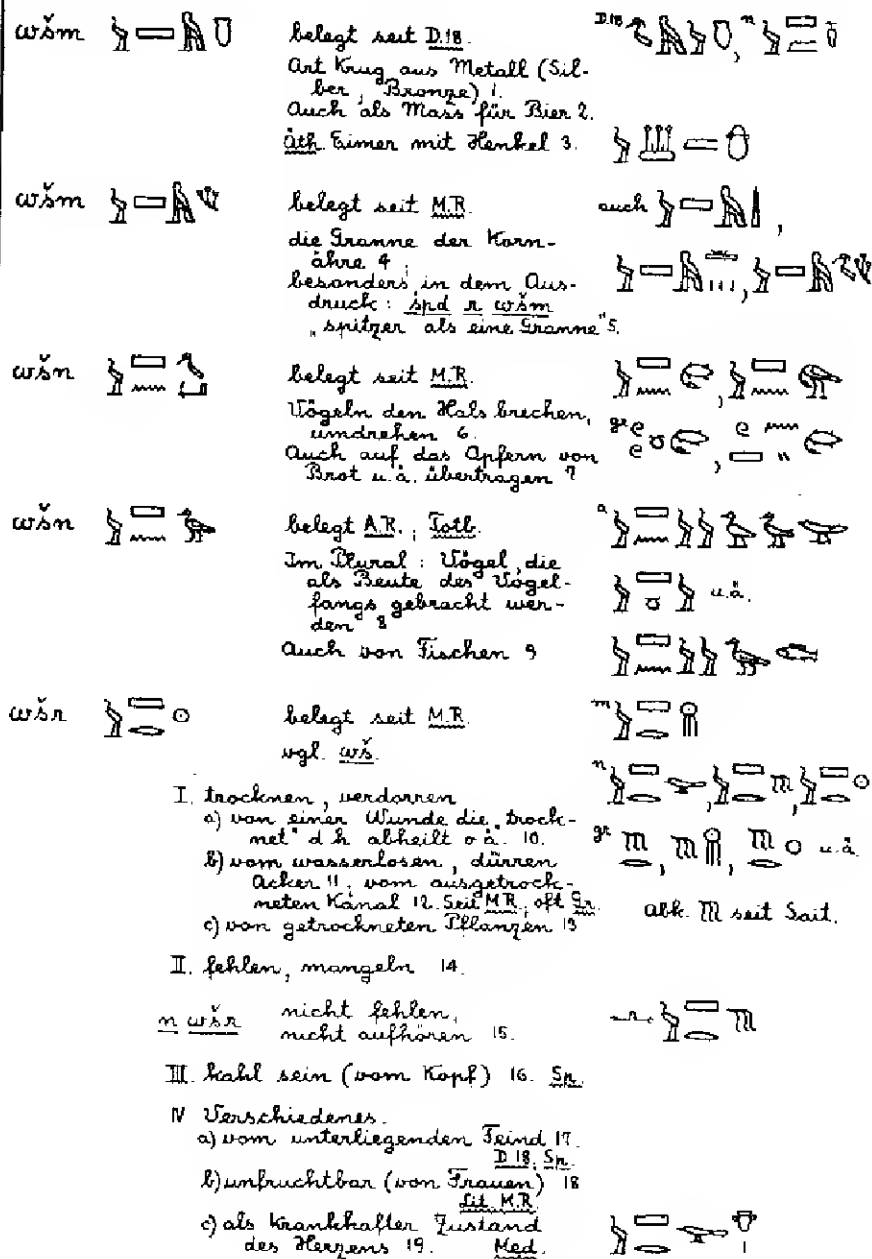 wšm belegt seit D.18.
Art Krug aus Metall (Sil-
ber, Bronze) 1.
Auch als Mass für Bier 2.
äth. Eimer mit Henkel 3.
wšm belegt seit M.R. auch
die Granne der Korn-
ähre 4;
besonders in dem Aus-
druck: spd r wšm
„spitzer als eine Granne" 5.
wšn belegt seit M.R.
Vögeln den Hals brechen,
umdrehen 6. gr
Auch auf das Opfern von
Brot u.ä. übertragen 7
wšn belegt A.R.; Totb. a
Im Plural: Vögel, die
als Beute des Vogel-
fangs gebracht wer-
den 8 u.ä.
Auch von Fischen 9
wšr belegt seit M.R. m
vgl. wš.
I. trocknen, verdorren n
a) von einer Wunde die „trock-
net" d h abheilt o ä. 10. gr u.ä.
b) vom wasserlosen, dürren
Acker 11; vom ausgetrock-
neten Kanal 12. Seit M.R.; oft Gr.
c) von getrockneten Pflanzen 13 abk. seit Sait.
II. fehlen, mangeln 14.
n wšr nicht fehlen,
nicht aufhören 15.
III. kahl sein (vom Kopf) 16. Sp.
IV Verschiedenes.
a) vom unterliegenden Feind 17.
D 18; Sp.
b) unfruchtbar (von Frauen) 18
Lit. M.R.
c) als krankhafter Zustand
des Herzens 19. Med.